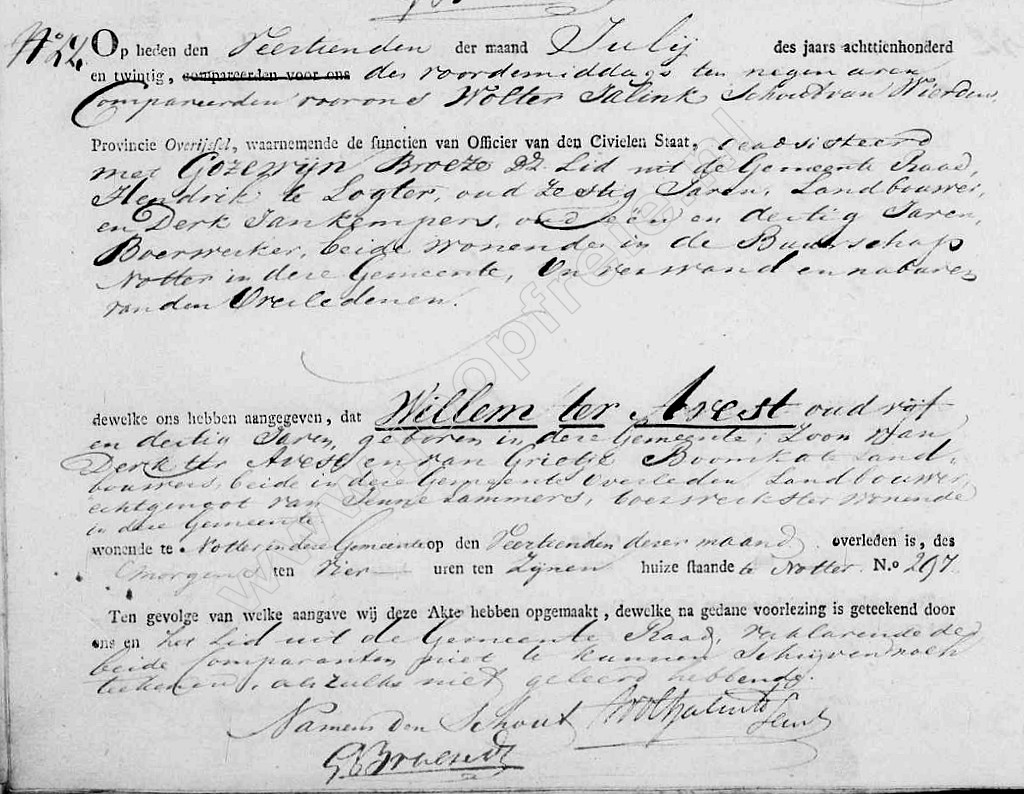 No 22. Op heden den Veertienden der maand Julij des jaars achttienhonderd
en twintig, compareerden voor ons des voordemiddags ten negen uren
Compareerden voor ons Wolter Jalink Schout van Wierden,
Provincie Overijssel, waarnemende de functien van Officier van den Civielen Staat, geadsisteerd
met Gozewijn Broeze Lid uit de Gemeente Raad,
Hendrik te Logter, oud Zestig Jaren, Landbouwer,
en Derk Jan Kempers, oud een en dertig Jaren,
Boerwerker, beide wonende in de Buurschap
Notter in deze Gemeente, en naburen
van den Overledenen.
dewelke ons hebben aangegeven, dat Willem ter Avest oud vijf
en dertig Jaren, geboren in deze Gemeente, Zoon van
Derk ter Avest en van Grietje Boomkate Land,
bouwers, beide in deze Gemeente Overleden, Landbouwer,
echtgenoot van Jenne Lammers, boerwerkster wonende
in deze Gemeente
wonende te Notter in deze Gemeente op den Veertienden dezer maand overleden is, des
morgens ten vier uren ten Zijnen huize staande te Notter N.o 297.
Ten gevolge van welke aangave wij deze Akte hebben opgemaakt, dewelke na gedane voorlezing is geteekend door
ons en het Lid uit de Gemeente Raad, verklarende de
beide Comparanten niet te kunnen Schrijven noch
teekenen, als zulks niet geleerd hebbende.
Namens den Schout
www.hopfreie.nl